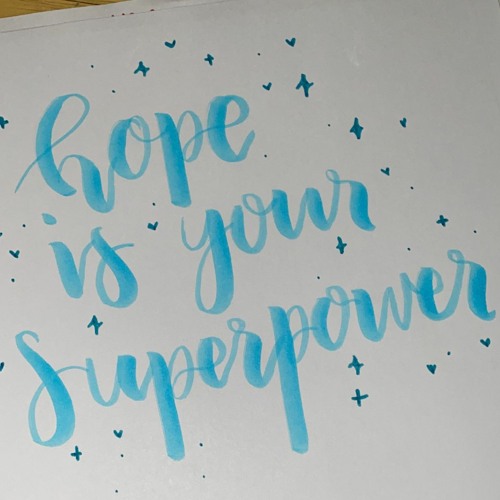 hope
is your
superpower